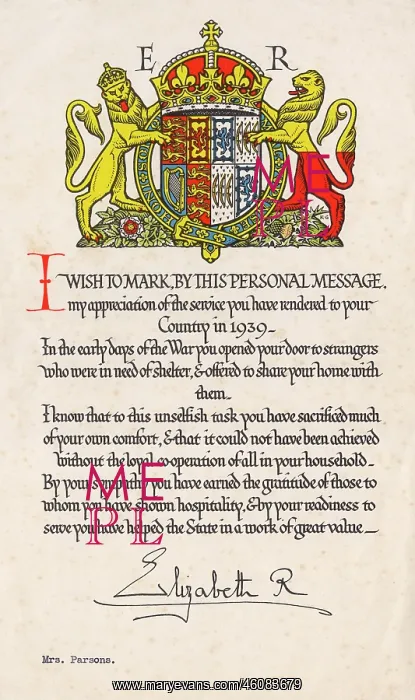 E R
I WISH TO MARK, BY THIS PERSONAL MESSAGE,
my appreciation of the service you have rendered to your
Country in 1939_
In the early days of the War you opened your door to strangers
who were in need of shelter, & offered to share your home with
them_
I know that to this unselfish task you have sacrificed much
of your own comfort, & that it could not have been achieved
without the loyal co-operation of all in your household_
By your sympathy you have earned the gratitude of those to
whom you have shown hospitality, & by your readiness to
serve you have helped the State in a work of great value_
Elizabeth R
Mrs. Parsons.
ME
PL
ME
PL
www.maryevans.com/46083679